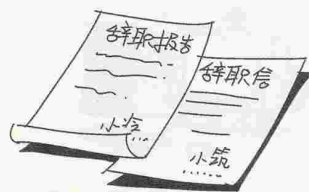 辞职报告
小冷
辞职信
小筑